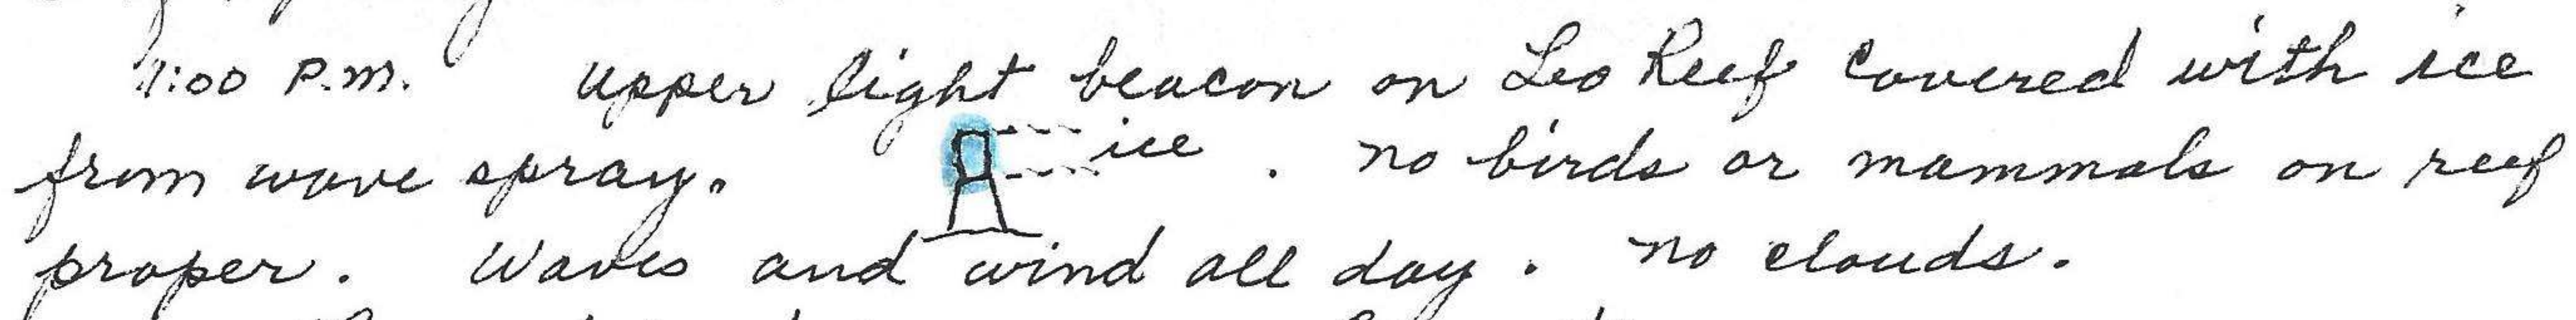 1:00 P.M. Upper light beacon on Leo Reef covered with ice
from wave spray. ice. no birds or mammals on reef
proper. Waves and wind all day. no clouds.